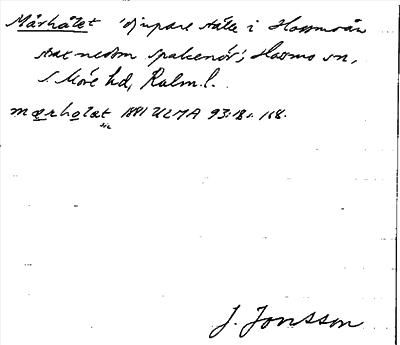 Märhålet 'djupare ställe i Hossmoån
strax nedom spakenör'; Hosmo sn,
S. Möre hd, Kalm. l.
mærholæt 1891 ULMA 93:18 s. 168.
J. Jonsson